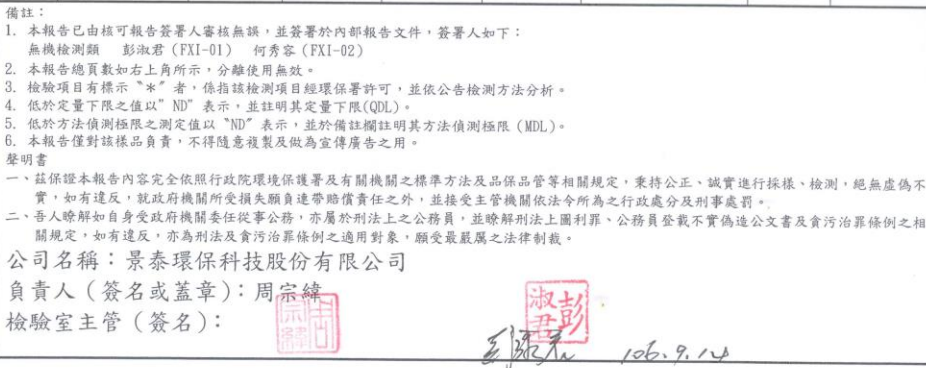 備註：
1. 本報告已由核可報告簽署人審核無誤，並簽署於內部報告文件，簽署人如下：
無機檢測類　彭淑君(FXI-01)　何秀容(FXI-02)
2. 本報告總頁數如右上角所示，分離使用無效。
3. 檢驗項目有標示〝*〞者，係指該檢測項目經環保署許可，並依公告檢測方法分析。
4. 低於定量下限之值以"ND"表示，並註明其定量下限(QDL)。
5. 低於方法偵測極限之測定值以〝ND〞表示，並於備註欄註明其方法偵測極限(MDL)。
6. 本報告僅對該樣品負責，不得隨意複製及做為宣傳廣告之用。
聲明書
一、茲保證本報告內容完全依照行政院環境保護署及有關機關之標準方法及品保品管等相關規定，秉持公正、誠實進行採樣、檢測，絕無虛偽不
實，如有違反，就政府機關所受損失願負連帶賠償責任之外，並接受主管機關依法令所為之行政處分及刑事處罰。
二、吾人瞭解如自身受政府機關委任從事公務，亦屬於刑法上之公務員，並瞭解刑法上圖利罪、公務員登載不實偽造公文書及貪污治罪條例之相
關規定，如有違反，亦為刑法及貪污治罪條例之適用對象，願受最嚴厲之法律制裁。
公司名稱：景泰環保科技股份有限公司
負責人（簽名或蓋章）：周宗緯
周宗緯
檢驗室主管（簽名）：
彭淑君
彭淑君 106.9.14